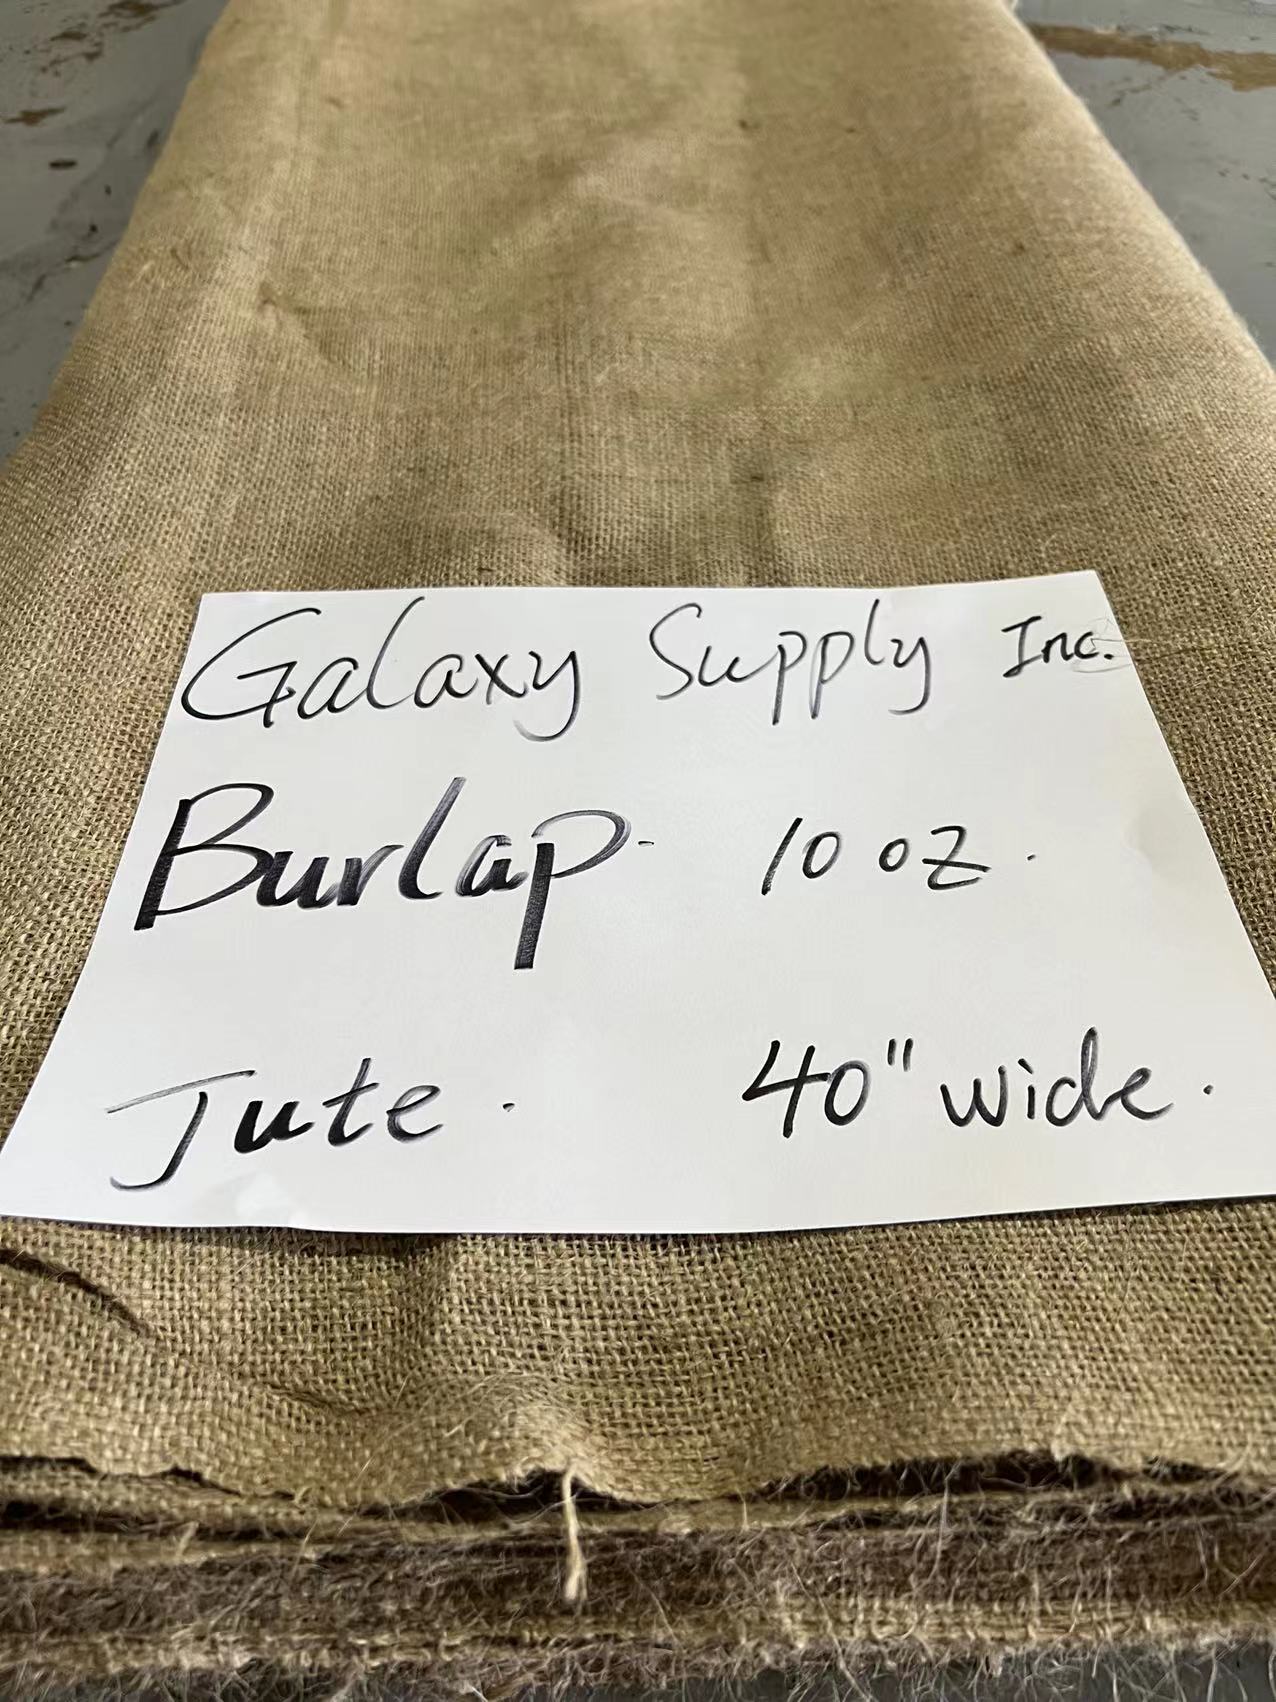 Galaxy Supply Inc.
Burlap. 10 oz.
Jute. 40" wide.